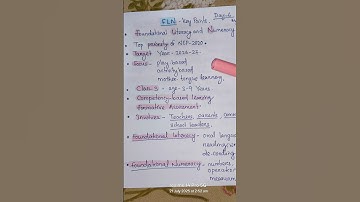 FLN - Key Points. Day-6
• Foundational Literacy and Numeracy
• Top priority of NEP-2020.
• Target Year - 2026-27
• Focus - Play-based
activity based
mother tongue learning
• Class-3 - age - 3-9 Years
• Competency-based learning
• Formative Assessment
• Involves - Teachers, parents,
school leaders.
• Foundational Literacy - oral
reading
de-coding
• Foundational Numeracy - numbers,
29 July 2025 at 2:52 am